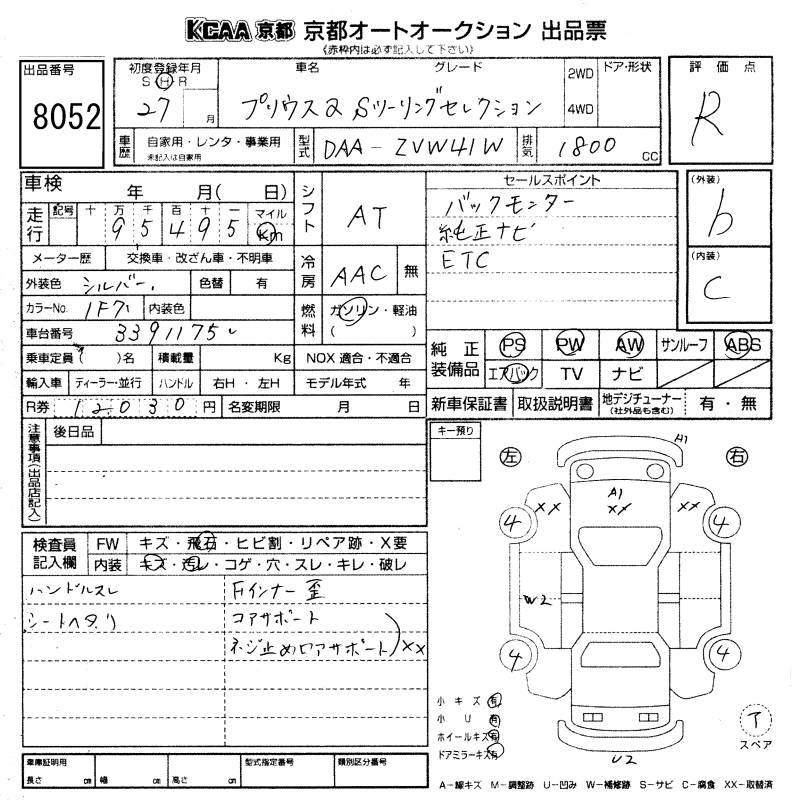 KCAA 京都 京都オートオークション 出品票
《赤枠内は必ず記入して下さい》
出品番号
8052
初度登録年月
S H R
27 月
車名 グレード
プリウスα Sツーリングセレクション
2WD
4WD
ドア・形状
評価点
R
車歴 自家用・レンタ・事業用
未記入は自家用
型式 DAA-ZVW41W
排気 1800 CC
車検 年 月( 日)
走行 記号 十 万 千 百 十 一 マイル
9 5 4 9 5 km
メーター歴 交換車・改ざん車・不明車
外装色 シルバー 色替 有
カラーNo. 1F7 内装色
車台番号 3391175
乗車定員( )名 積載量 Kg NOX 適合・不適合
輸入車 ディーラー・並行 ハンドル 右H・左H モデル年式 年
R券 12030 円 名変期限 月 日
シフト AT
冷房 AAC 無
燃料 ガソリン・軽油
( )
セールスポイント
バックモンター
純正ナビ
ETC
(外装)
b
(内装)
C
純正装備品 PS PW AW サンルーフ ABS
エアバック TV ナビ
新車保証書 取扱説明書 地デジチューナー(社外品も含む) 有・無
注意事項(出品店記入)
後日品
キー預り
左 右
A1
A1
XX XX XX
4 4
W2
4 4
U2
検査員記入欄 FW キズ・飛石・ヒビ割・リペア跡・X要
内装 キズ・汚レ・コゲ・穴・スレ・キレ・破レ
ハンドルスレ Fインナー歪
シートヘタリ コアサポート
ネジ止めロアサポート XX
小キズ 有
小U 有
ホイールキズ 有
ドアミラーキズ 有
スペア
車庫証明用
長さ cm 幅 cm 高さ cm
型式指定番号
類別区分番号
A-線キズ M-調整跡 U-凹み W-補修跡 S-サビ C-腐食 XX-取替済